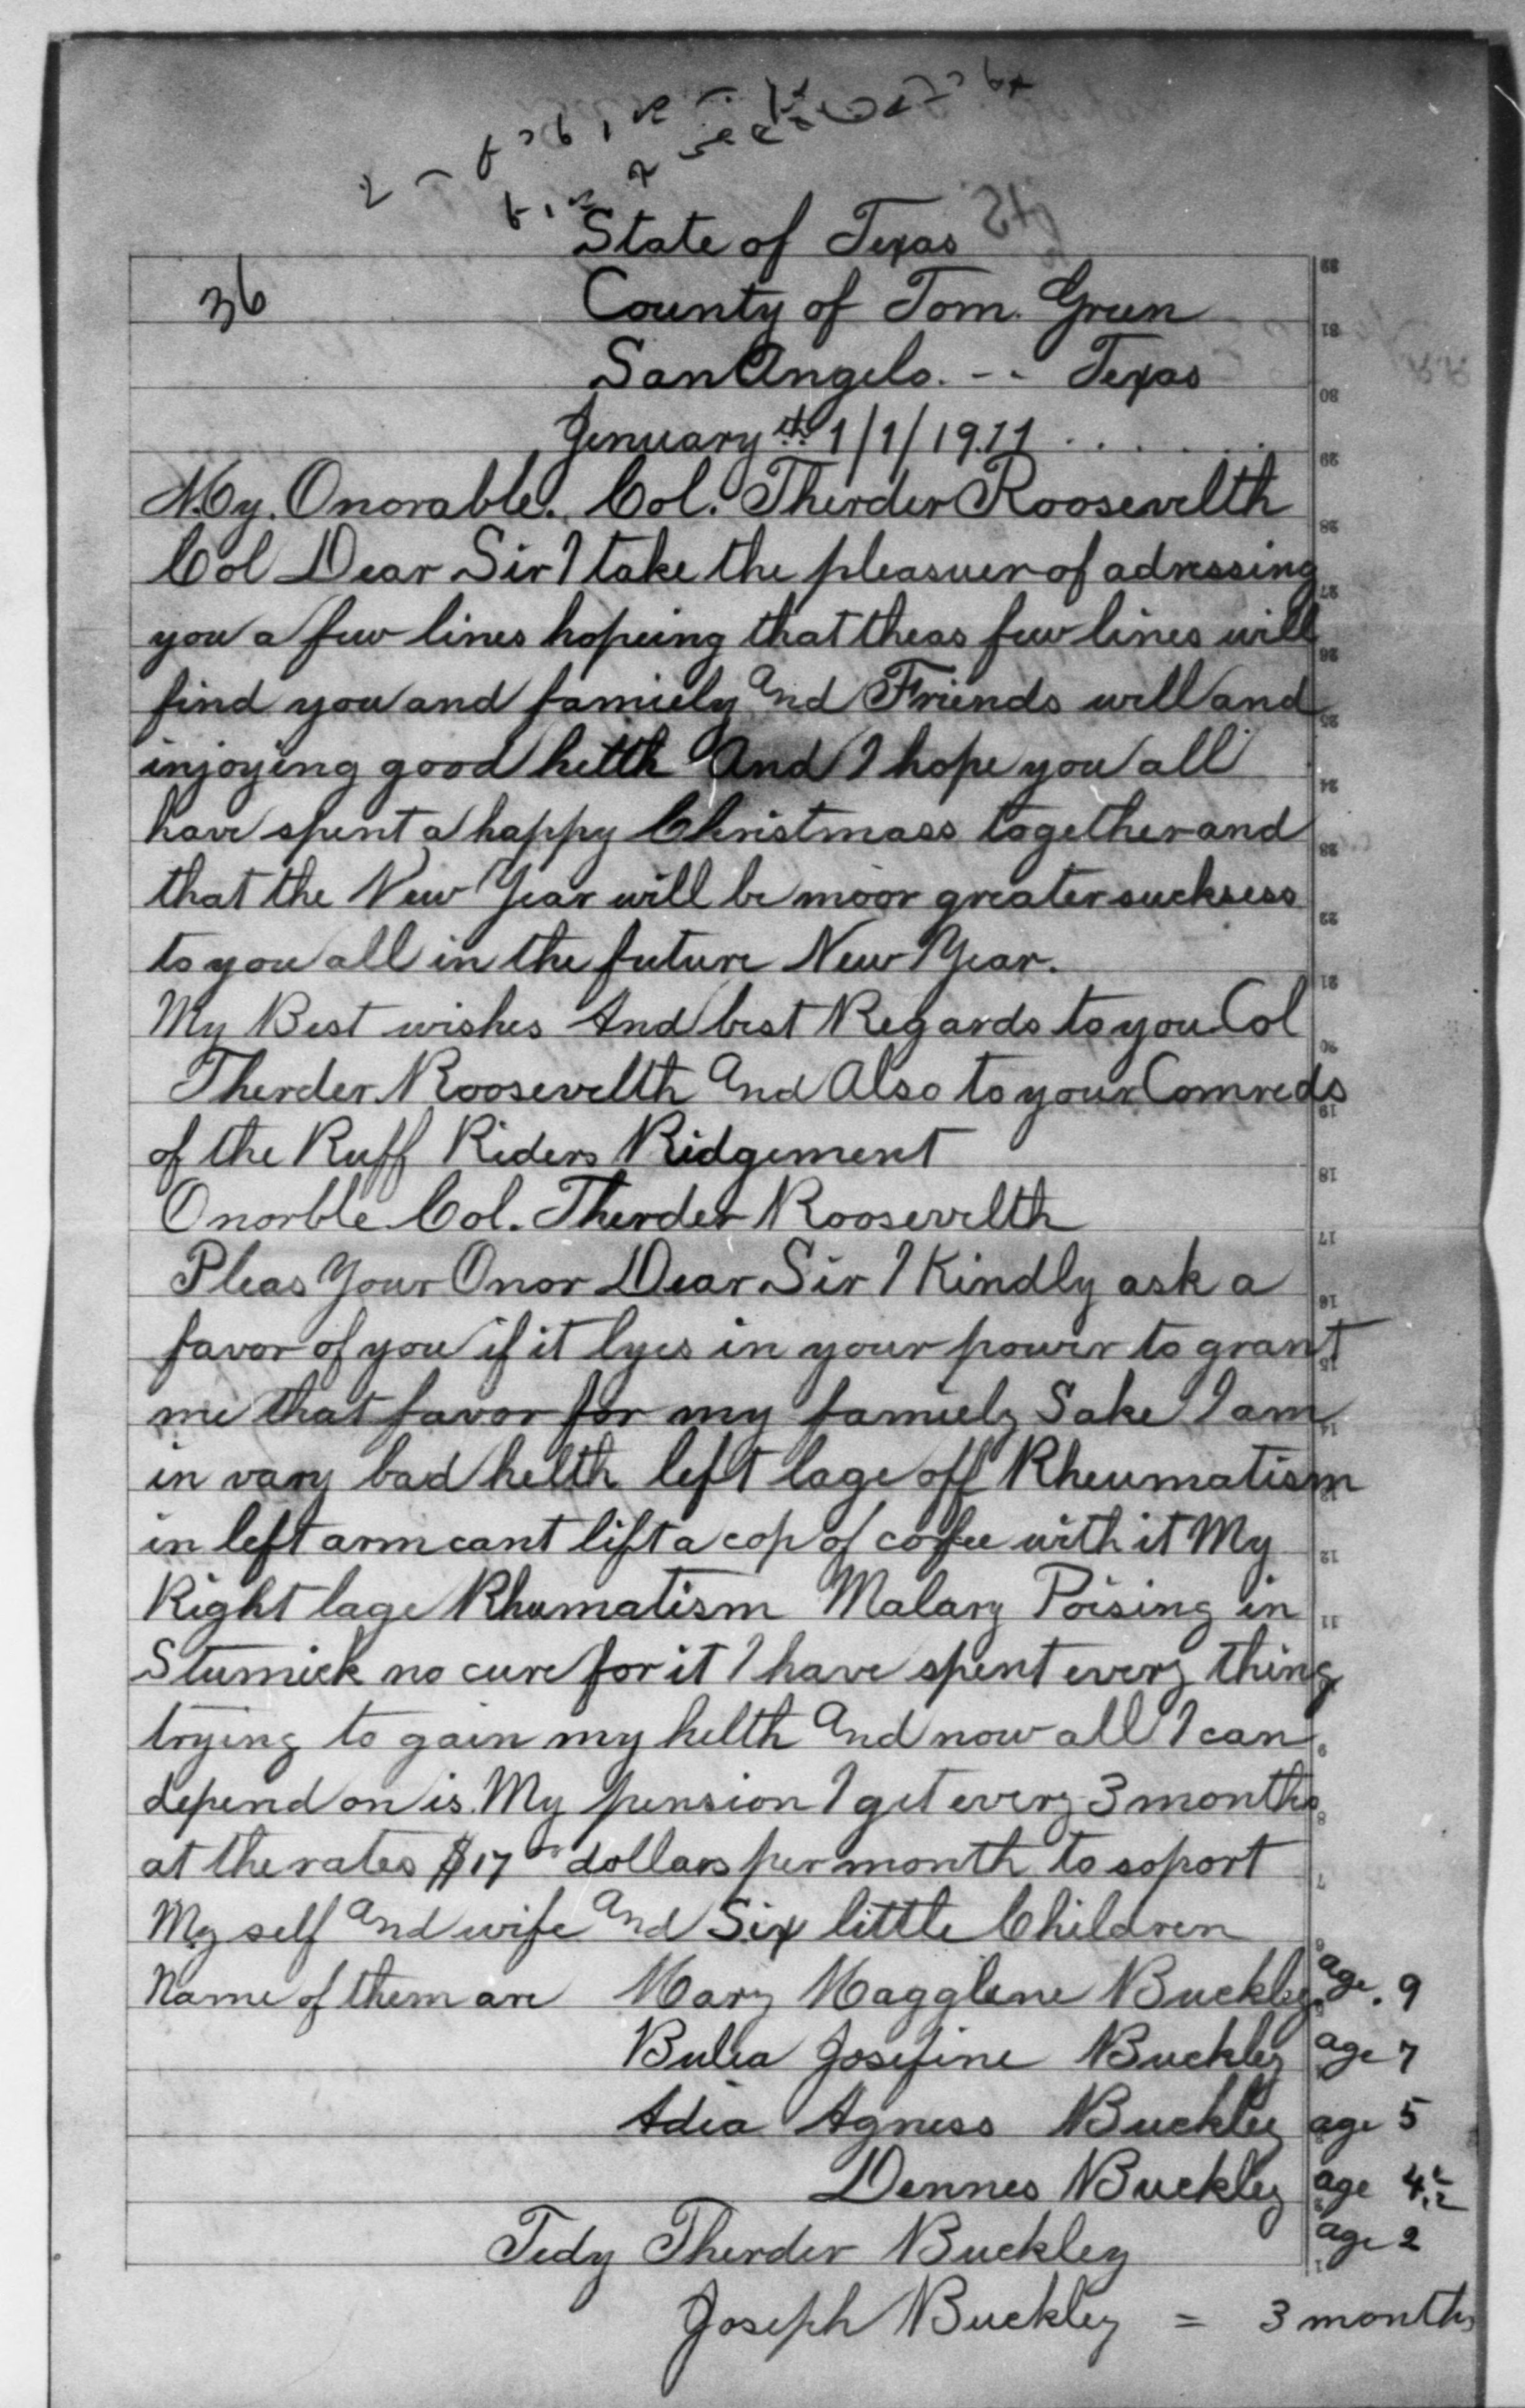 State of Texas
36
County of Tom. Green
San Angelo. - - Texas
Jenuary th 1/1/1911
My. Onorable. Col. Therder Roosevelth
Col Dear Sir I take the pleasuer of adressing
you a few lines hopeing that theas few lines will
find you and famiely And Friends will and
injoying good helth And I hope you all
have spent a happy Christmass together and
that the New Year will be moor greater sucksess
to you all in the future New Year.
My Best wishes And best Regards to you Col
Therder Roosevelth And Also to your Comreds
of the Ruff Riders Ridgement
Onorble Col. Therder Roosevelth
Pleas Your Onor Dear Sir I Kindly ask a
favor of you if it lyes in your power to grant
me that favor for my famiely Sake I am
in vary bad helth left lage off Rheumatism
in left arm cant lift a cop of coffee with it My
Right lage Rhumatism Malary Poising in
Stumick no cure for it I have spent every thing
trying to gain my helth And now all I can
depend on is. My pension I get every 3 months
at the rates $17 dollars per month to soport
My self And wife And Six little Children
Name of them are Mary Magglene Buckley age. 9
Bulea Josefine Buckley age 7
Adia Agness Buckley age 5
Dennes Buckley age 4
Tedy Therder Buckley age 2
Joseph Buckley = 3 months